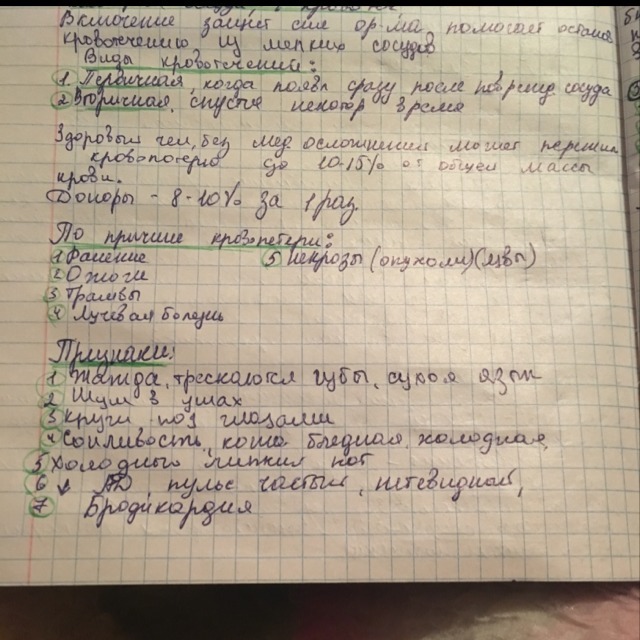 Включение защит сил ор-ма помогает остано
кровотечению из мелких сосудов
Виды кровотечений:
1 Первичная, когда появл сразу после поврежд сосуда
2 Вторичная, спустя некотор время
Здоровый чел, без мед осложнений может перенес
кровопотерю до 10-15% от общей массы
крови.
Доноры - 8-10% за 1 раз.
По причине кровопотери:
1 Ранение
5 некрозы (опухоли) (язвы)
2 Ожоги
3 Травмы
4 Лучевая болезнь
Признаки:
1 Жажда, трескаются губы, сухой язык
2 Шум в ушах
3 Круги под глазами
4 Сонливость, кожа бледная, холодная,
5 Холодный липкий пот
6 ↓ АД пульс частый, нитевидный,
7 Бродикардия